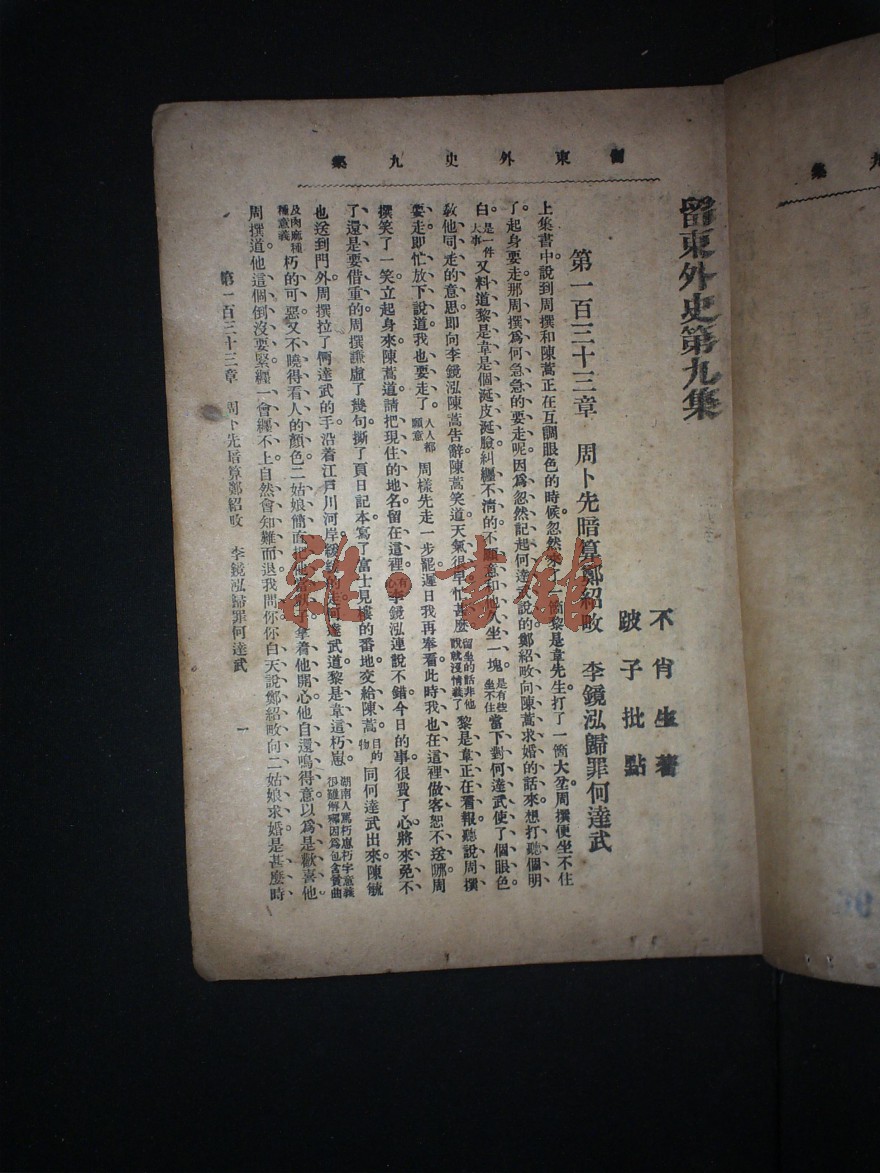 留東外史第九集
不肖生著
跛子批點
第一百三十三章　周卜先暗算鄭紹畋　李鏡泓歸罪何達武
上集書中說到周撰和陳蒿正在互調眼色的時候忽然來了一個黎是韋先生打了一個大坌周撰便坐不住
了。起身要走那周撰爲何急急的要走呢因爲忽然記起何達武說的鄭紹畋向陳蒿求婚的話來想打聽個明
白。是一件大事又料道黎是韋是個涎皮涎臉糾纏不淸的不願意和他人坐一塊。是有些坐不住當下對何達武使了個眼色
敎他同走的意思即向李鏡泓陳蒿告辭陳蒿笑道天氣很早忙甚麼留坐的話非他說就沒情義了黎是韋正在看報聽說周撰
要走即忙放下說道我也要走了人人都願意周樣先走一步罷遲日我再奉看此時我也在這裡做客恕不送哪周
撰笑了一笑立起身來陳蒿道請把現住的地名留在這裡有心李鏡泓連說不錯今日的事很費了心將來免不
了還是要借重的周撰謙虛了幾句撕了頁日記本寫了富士見樓的番地交給陳蒿目的物同何達武出來陳毓
也送到門外周撰拉了何達武的手沿着江戶川河岸緩緩的走何達武道黎是韋這朽崽湖南人罵朽崽朽字意義很難解釋因爲包含賣曲
及肉麻種種意義朽的可惡又不曉得看人的顏色二姑娘簡直把他當獃子拿着他開心他自還嗚得意以爲是歡喜他
周撰道他這個倒沒要緊纏一會纏不上自然會知難而退我問你你白天說鄭紹畋向二姑娘求婚是甚麼時
留東外史九集
第一百三十三章　周卜先暗算鄭紹畋　李鏡泓歸罪何達武
一
九集
雜·書館